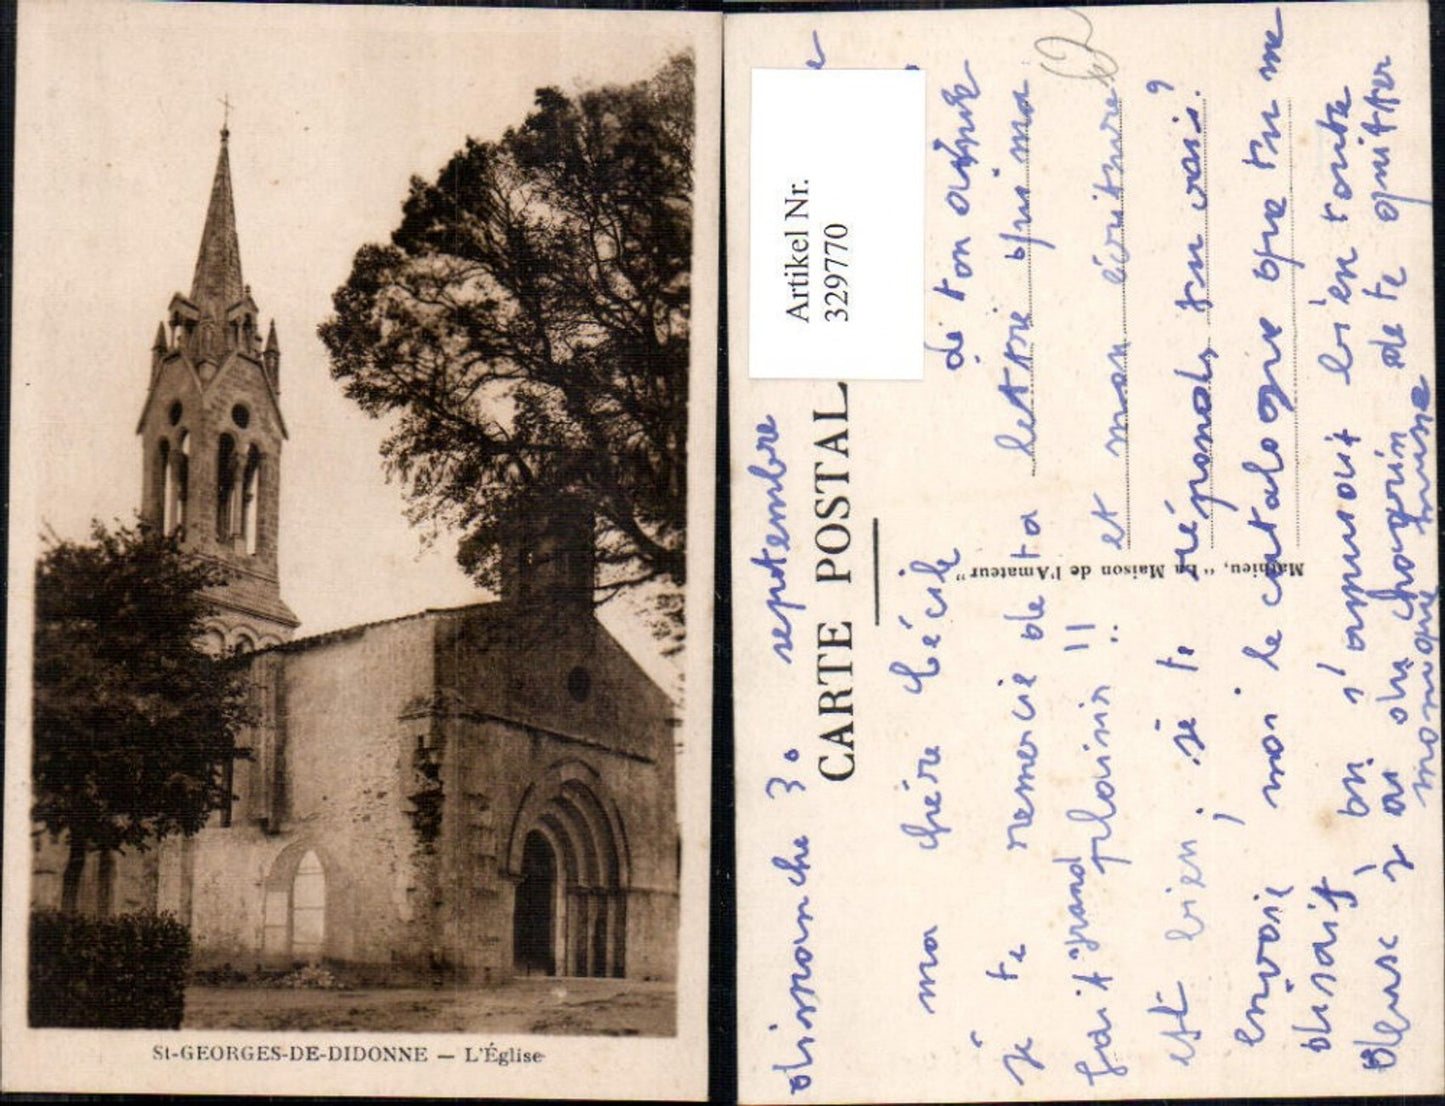 St-GEORGES-DE-DIDONNE — L'Église
Artikel Nr.
329770
CARTE POSTALE
Mathieu, "La Maison de l'Amateur"
dimanche 30 septembre
ma chère Cécile
je te remercie de ta lettre qui m'a
fait grand plaisir !!
et mon écriture
est bien, je te réponds, tu vois?
envoie moi le catalogue que tu me
disais, on s'amusait bien toute
j'ai du chagrin de te quitter